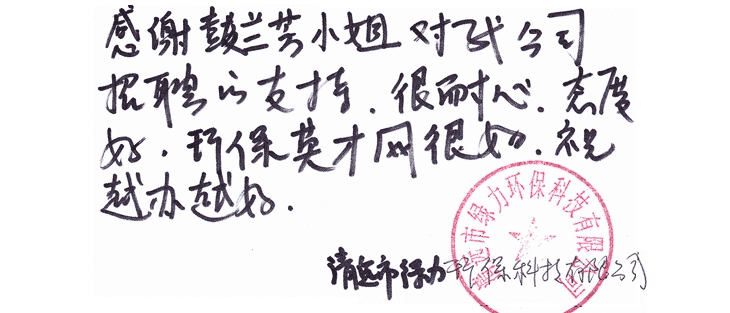 感谢彭兰芳小姐对我公司
招聘的支持，很耐心，态度
好，环保英才网很好，祝
越办越好．
清远市绿力环保科技有限公司
清远市绿力环保科技有限公司